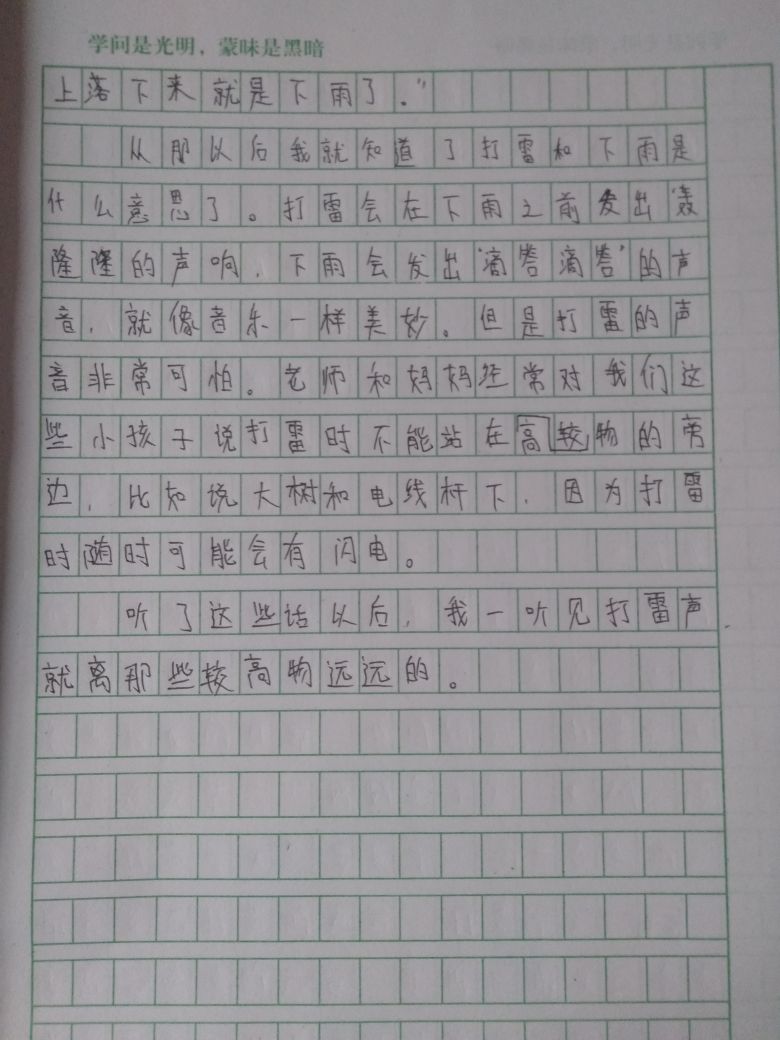 学问是光明，蒙昧是黑暗
上落下来就是下雨了。”
从那以后我就知道了打雷和下雨是
什么意思了。打雷会在下雨之前发出“轰
隆隆的声响，下雨会发出“滴答滴答”的声
音，就像音乐一样美妙。但是打雷的声
音非常可怕。老师和妈妈经常对我们这
些小孩子说打雷时不能站在高较物的旁
边，比如说大树和电线杆下，因为打雷
时随时可能会有闪电。
听了这些话以后，我一听见打雷声
就离那些较高物远远的。